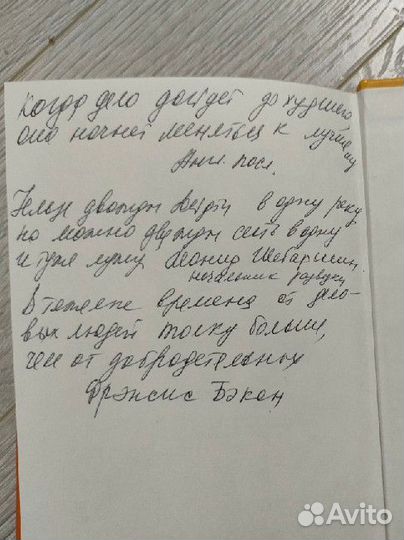 Когда дело дойдет до худшего
оно начнет меняться к лучшему
Анг. посл.
Нельзя дважды войти в одну реку
но можно дважды сесть в одну
и туже лужу Леонид Шебаршин,
начальник разведки
В тяжелые времена от дело-
вых людей толку больше,
чем от добродетельных
Фрэнсис Бэкон
Avito